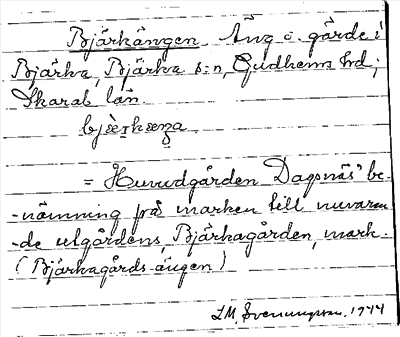 Bjärkängen. Äng o. gärde i
Bjärka, Bjärka s:n, Gudhems hd;
Skarab län.
= Huvudgården Dagsnäs' be-
-nämning på marken till nuvaran-
-de utgårdens, Bjärkagården, mark.
(Bjärkagårds-ängen)
L M, Svenungsson, 1944